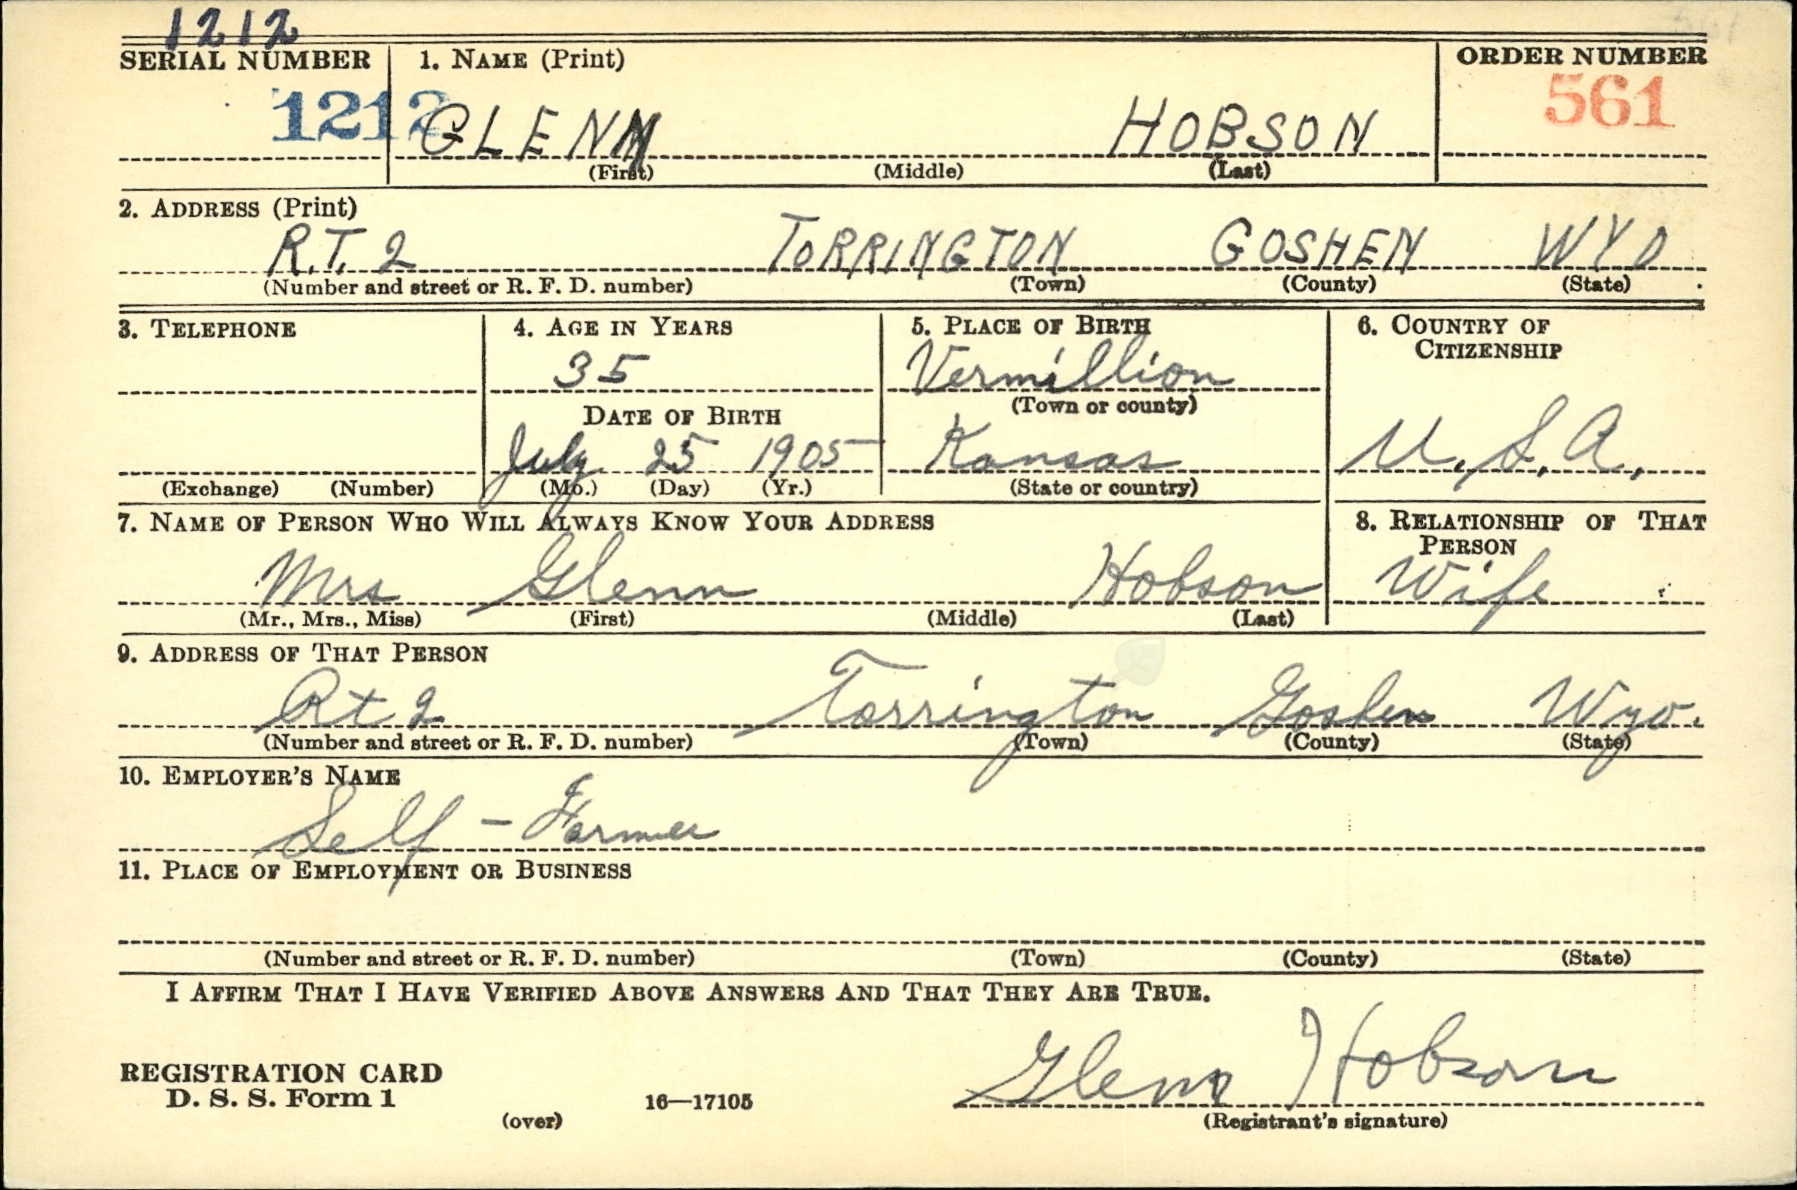 1212
SERIAL NUMBER 1. NAME (Print) ORDER NUMBER
1212 GLENN HOBSON 561
(First) (Middle) (Last)
2. ADDRESS (Print)
R.T. 2 TORRINGTON GOSHEN WYO
(Number and street or R. F. D. number) (Town) (County) (State)
3. TELEPHONE 4. AGE IN YEARS 5. PLACE OF BIRTH 6. COUNTRY OF
CITIZENSHIP
35 Vermillion
(Town or county)
DATE OF BIRTH
July 25 1905 Kansas U.S.A.
(Exchange) (Number) (Mo.) (Day) (Yr.) (State or country)
7. NAME OF PERSON WHO WILL ALWAYS KNOW YOUR ADDRESS 8. RELATIONSHIP OF THAT
PERSON
Mrs Glenn Hobson Wife
(Mr., Mrs., Miss) (First) (Middle) (Last)
9. ADDRESS OF THAT PERSON
Rt 2 Torrington Goshen Wyo.
(Number and street or R. F. D. number) (Town) (County) (State)
10. EMPLOYER'S NAME
Self - Farmer
11. PLACE OF EMPLOYMENT OR BUSINESS
(Number and street or R. F. D. number) (Town) (County) (State)
I AFFIRM THAT I HAVE VERIFIED ABOVE ANSWERS AND THAT THEY ARE TRUE.
Glenn Hobson
REGISTRATION CARD
D. S. S. Form 1 16—17105
(over) (Registrant's signature)